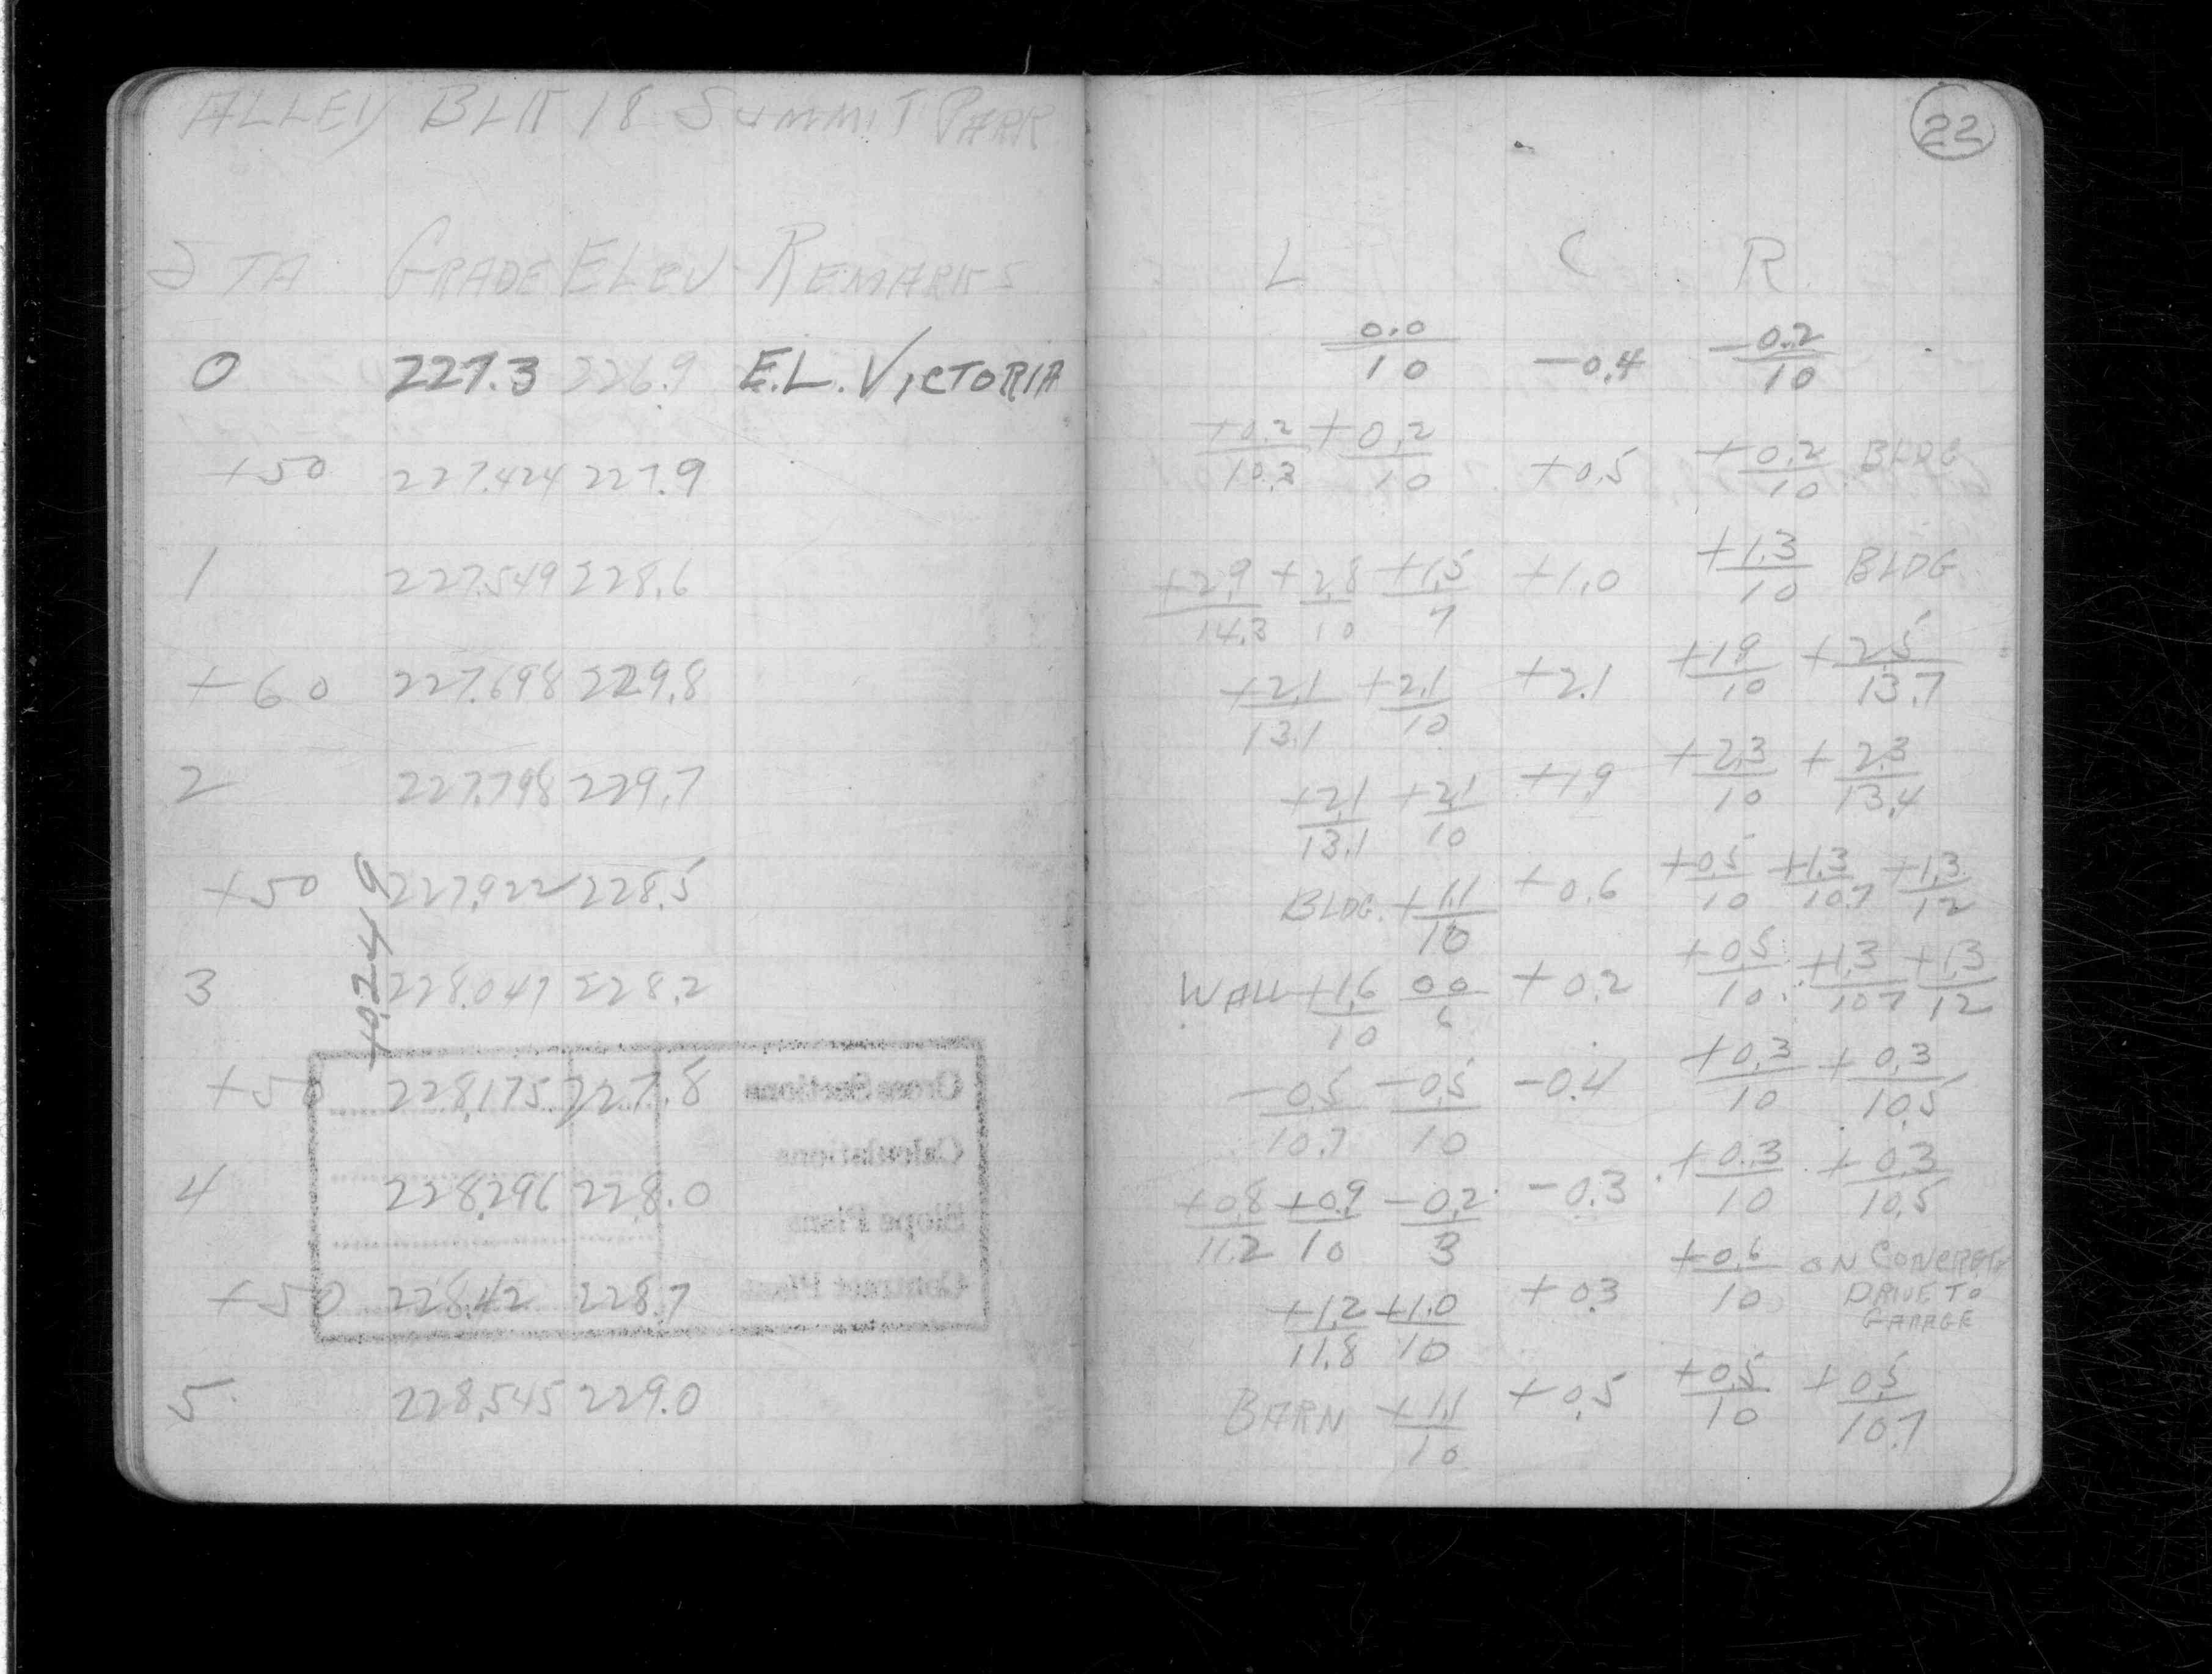 ALLEY BLK 18 SUMMIT PARK
22
STA GRADE ELEV REMARKS
L C R
0 227.3 226.9 E.L. VICTORIA
0.0/10 -0.4 -0.2/10
+50 227.424 227.9
+0.2/10.3 +0.2/10 +0.5 +0.2/10 BLDG
1 227.549 228.6
+2.9/14.3 +2.8/10 +1.5/7 +1.0 +1.3/10 BLDG.
+60 227.698 229.8
+2.1/13.1 +2.1/10 +2.1 +1.9/10 +2.5/13.7
2 227.798 229.7
+2.1/13.1 +2.1/10 +1.9 +2.3/10 +2.3/13.4
+50 227.922 228.5
BLDG. +1.1/10 +0.6 +0.5/10 +1.3/10.7 +1.3/12
+0.249
3 228.047 228.2
WALL +1.6/10 0.0/6 +0.2 +0.5/10 +1.3/10.7 +1.3/12
+50 228.175 227.8
-0.5/10.7 -0.5/10 -0.4 +0.3/10 +0.3/10.5
4 228.296 228.0
+0.8/11.2 +0.9/10 -0.2/3 -0.3 +0.3/10 +0.3/10.5
+50 228.42 228.7
+1.2/11.8 +1.0/10 +0.3 +0.6/10 ON CONCRETE
DRIVE TO
GARAGE
5 228.545 229.0
BARN +1.1/10 +0.5 +0.5/10 +0.5/10.7
Cross Sections
Calculations
Slope Plans
Contract Plans